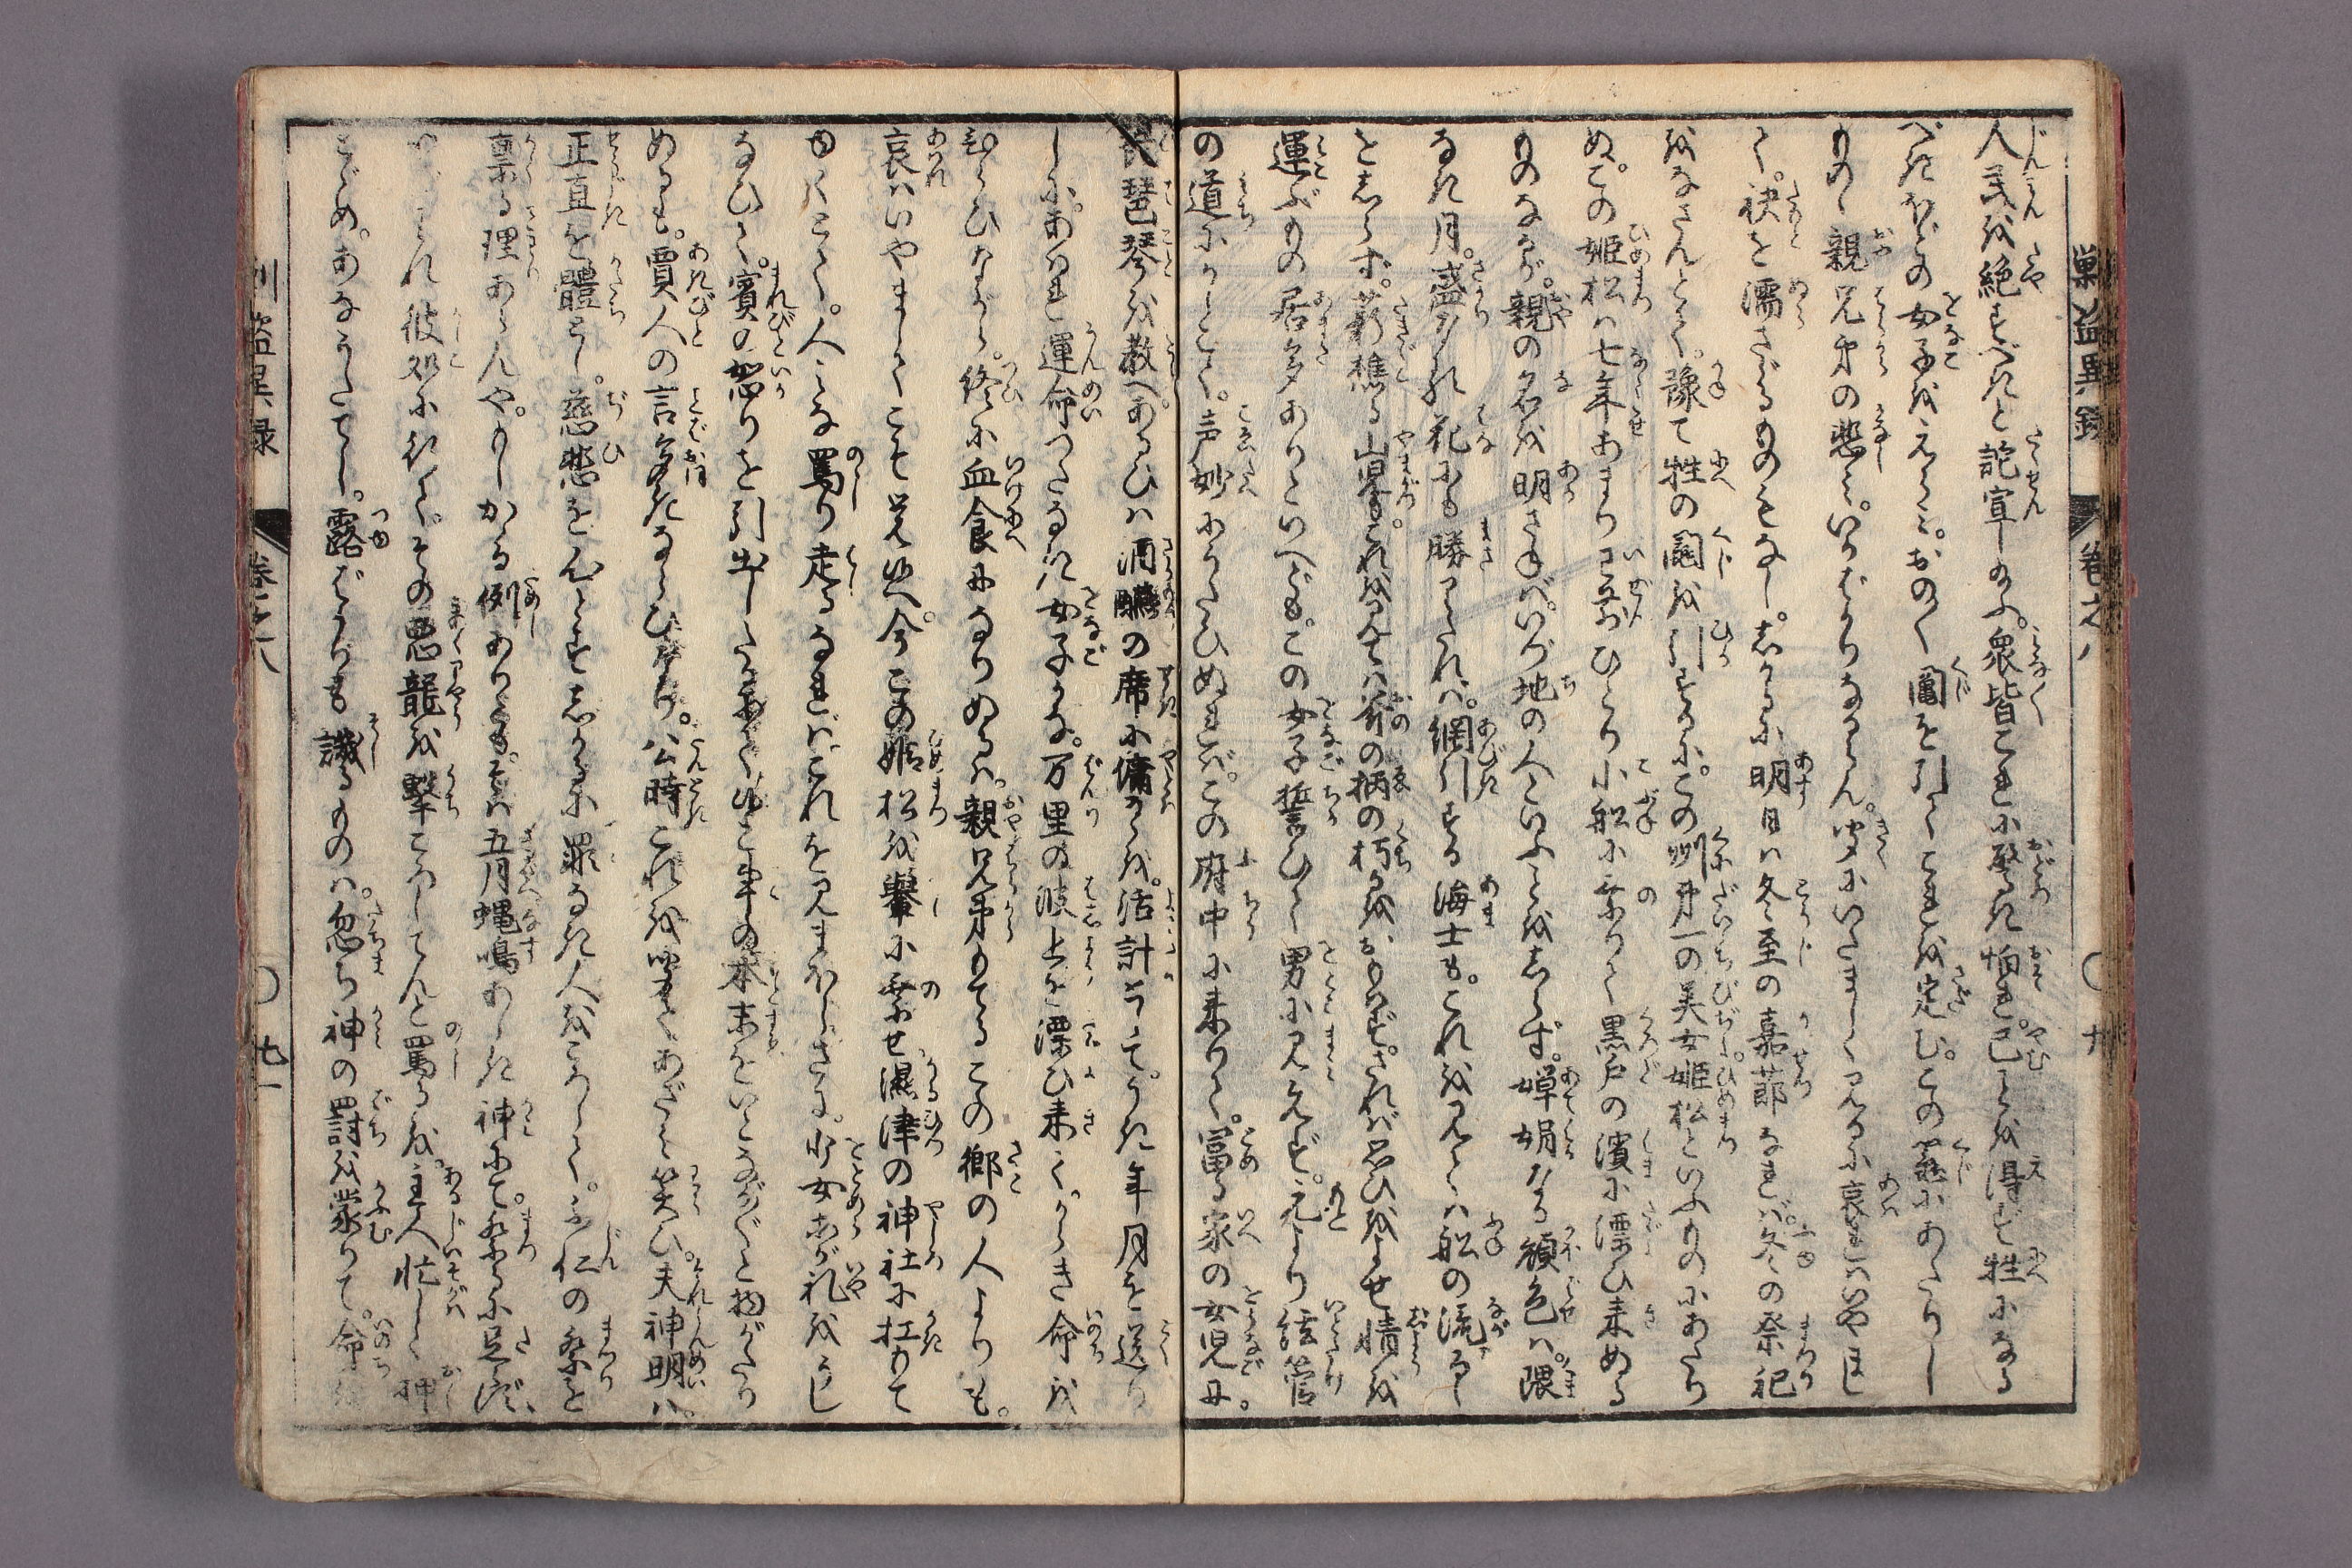 巣盗異録　巻之八　〇廿
人民を絶すべきと詫宣し給ふ。衆皆これに驚き怕れ。已ことを得ず牲になる
べきほどの女子をえらみ。おの〱鬮を引てこれを定む。この鬮にあたりし
ものゝ親兄弟の悲み。いかばかりなるらん。聞にいたましく見るに哀れはいやまし
て。袂を濡さゞるものもなし。しかるに明日は冬至の嘉節なれば。冬の祭祀
をなさんとて。豫て牲の鬮を引するに。この州第一の美女姫松といふものにあたり
ぬ。この姫松は七年あまり已前ひとり小舩に乗りて黒戸の濱に漂ひ来ぬる
ものなるが。親の名を明さねば。いづ地の人といふことをしらず。嬋娟なる顔色は。隈
なき月。盛なる花にも勝りたれば。網引する海士も。これを見ては舩の流るゝ
をしらず。薪樵る山賎もこれを見ては斧の柄の朽るをおもはず。されば思ひをよせ情を
運ぶもの居多ありといへども。この女子誓ひて男に見えず。元より絃管
の道にかしこく。声妙にうたひぬれば。この府中に来りて。富る家の女児に。
琵琶琴を教へあるひは酒醼の席に傭るゝを。活計として。うき年月を送り
しに。あはれ運命つたなき女子かな。万里の波上を漂ひ来て。からき命を
ひろひながら。終に血食になりぬるは。親兄弟もてるこの郷の人よりも。
哀はいやましくこそ覚ゆれ。今この姫松を轝に乗せ濕津の神社に扛もて
ゆくとて。人みな罵り走るなればこれを見まほしさに。少女等が礼を
なひて。賓の怒りを引出したるなりとて事の本末をいとながながと物がたり
めるも。賈人の言多きならひなり。公時これを聞てあざみ笑ひ。夫神明は。
正直を體とし。慈悲をむねとすしかるに罪なき人をころして。不仁の祭を
禀る理あらんや。もしかゝる例ありとも。そは五月蝿鳴あらき神にて。祭るに足らず。
われ彼処に行て。その悪龍を撃ころしてんと罵るを。主人忙しく押
とゞめ。あなうたてし。露ばかりも譏るものは。忽ち神の罸を蒙りて。命を
盗異録　巻之八　〇廿一